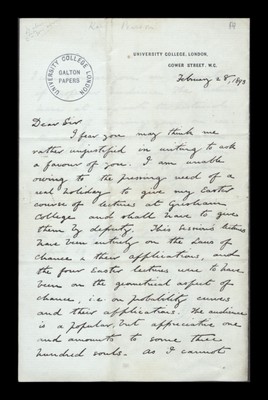 UNIVERSITY COLLEGE LONDON
GALTON PAPERS
UNIVERSITY COLLEGE, LONDON,
GOWER STREET, W.C.
February 28, 1893
Dear Sir
I fear you may think me
rather unjustified in writing to ask
a favour of you. I am unable
owing to the pressing need of a
real holiday to give my Easter
course of lectures at Gresham
College and shall have to give
them by deputy. This Session's lectures
have been entirely on the Laws of
chance & their applications, and
the four Easter lectures were to have
been on the geometrical aspect of
chance, i.e. on probability curves
and their applications. The audience
is a popular, but appreciative one
and amounts to some three
hundred souls. As I cannot